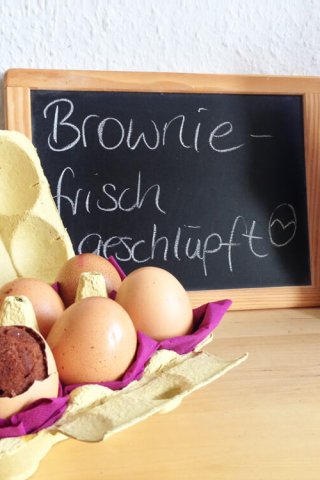 Brownie -
frisch
geschlüpft